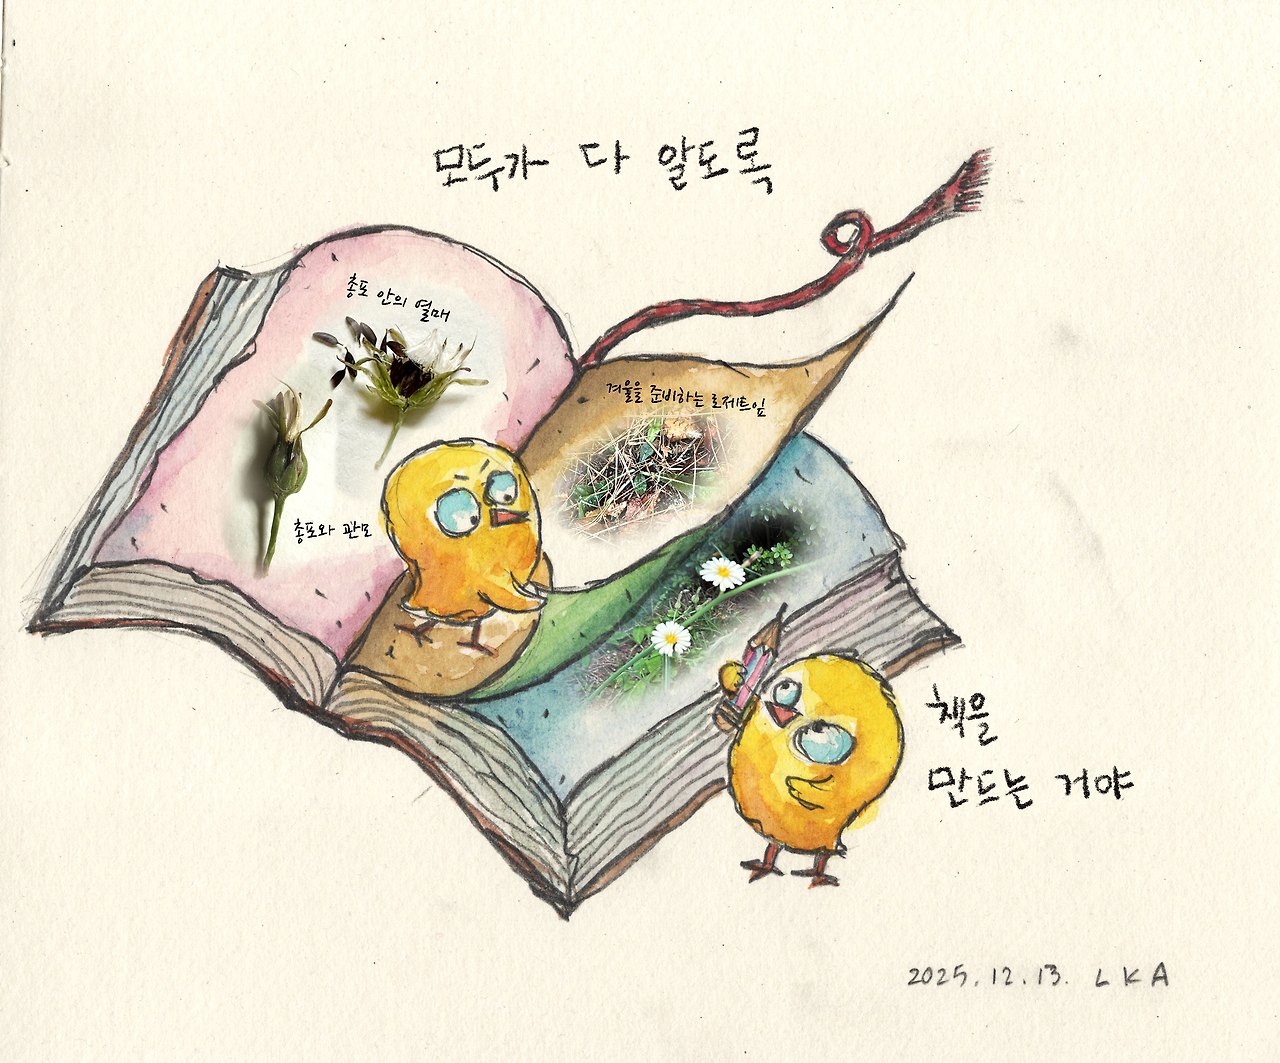 모두가 다 알도록
총포 안의 열매
겨울을 준비하는 로제트잎
총포와 관모
책을
만드는 거야
2025.12.13. LKA